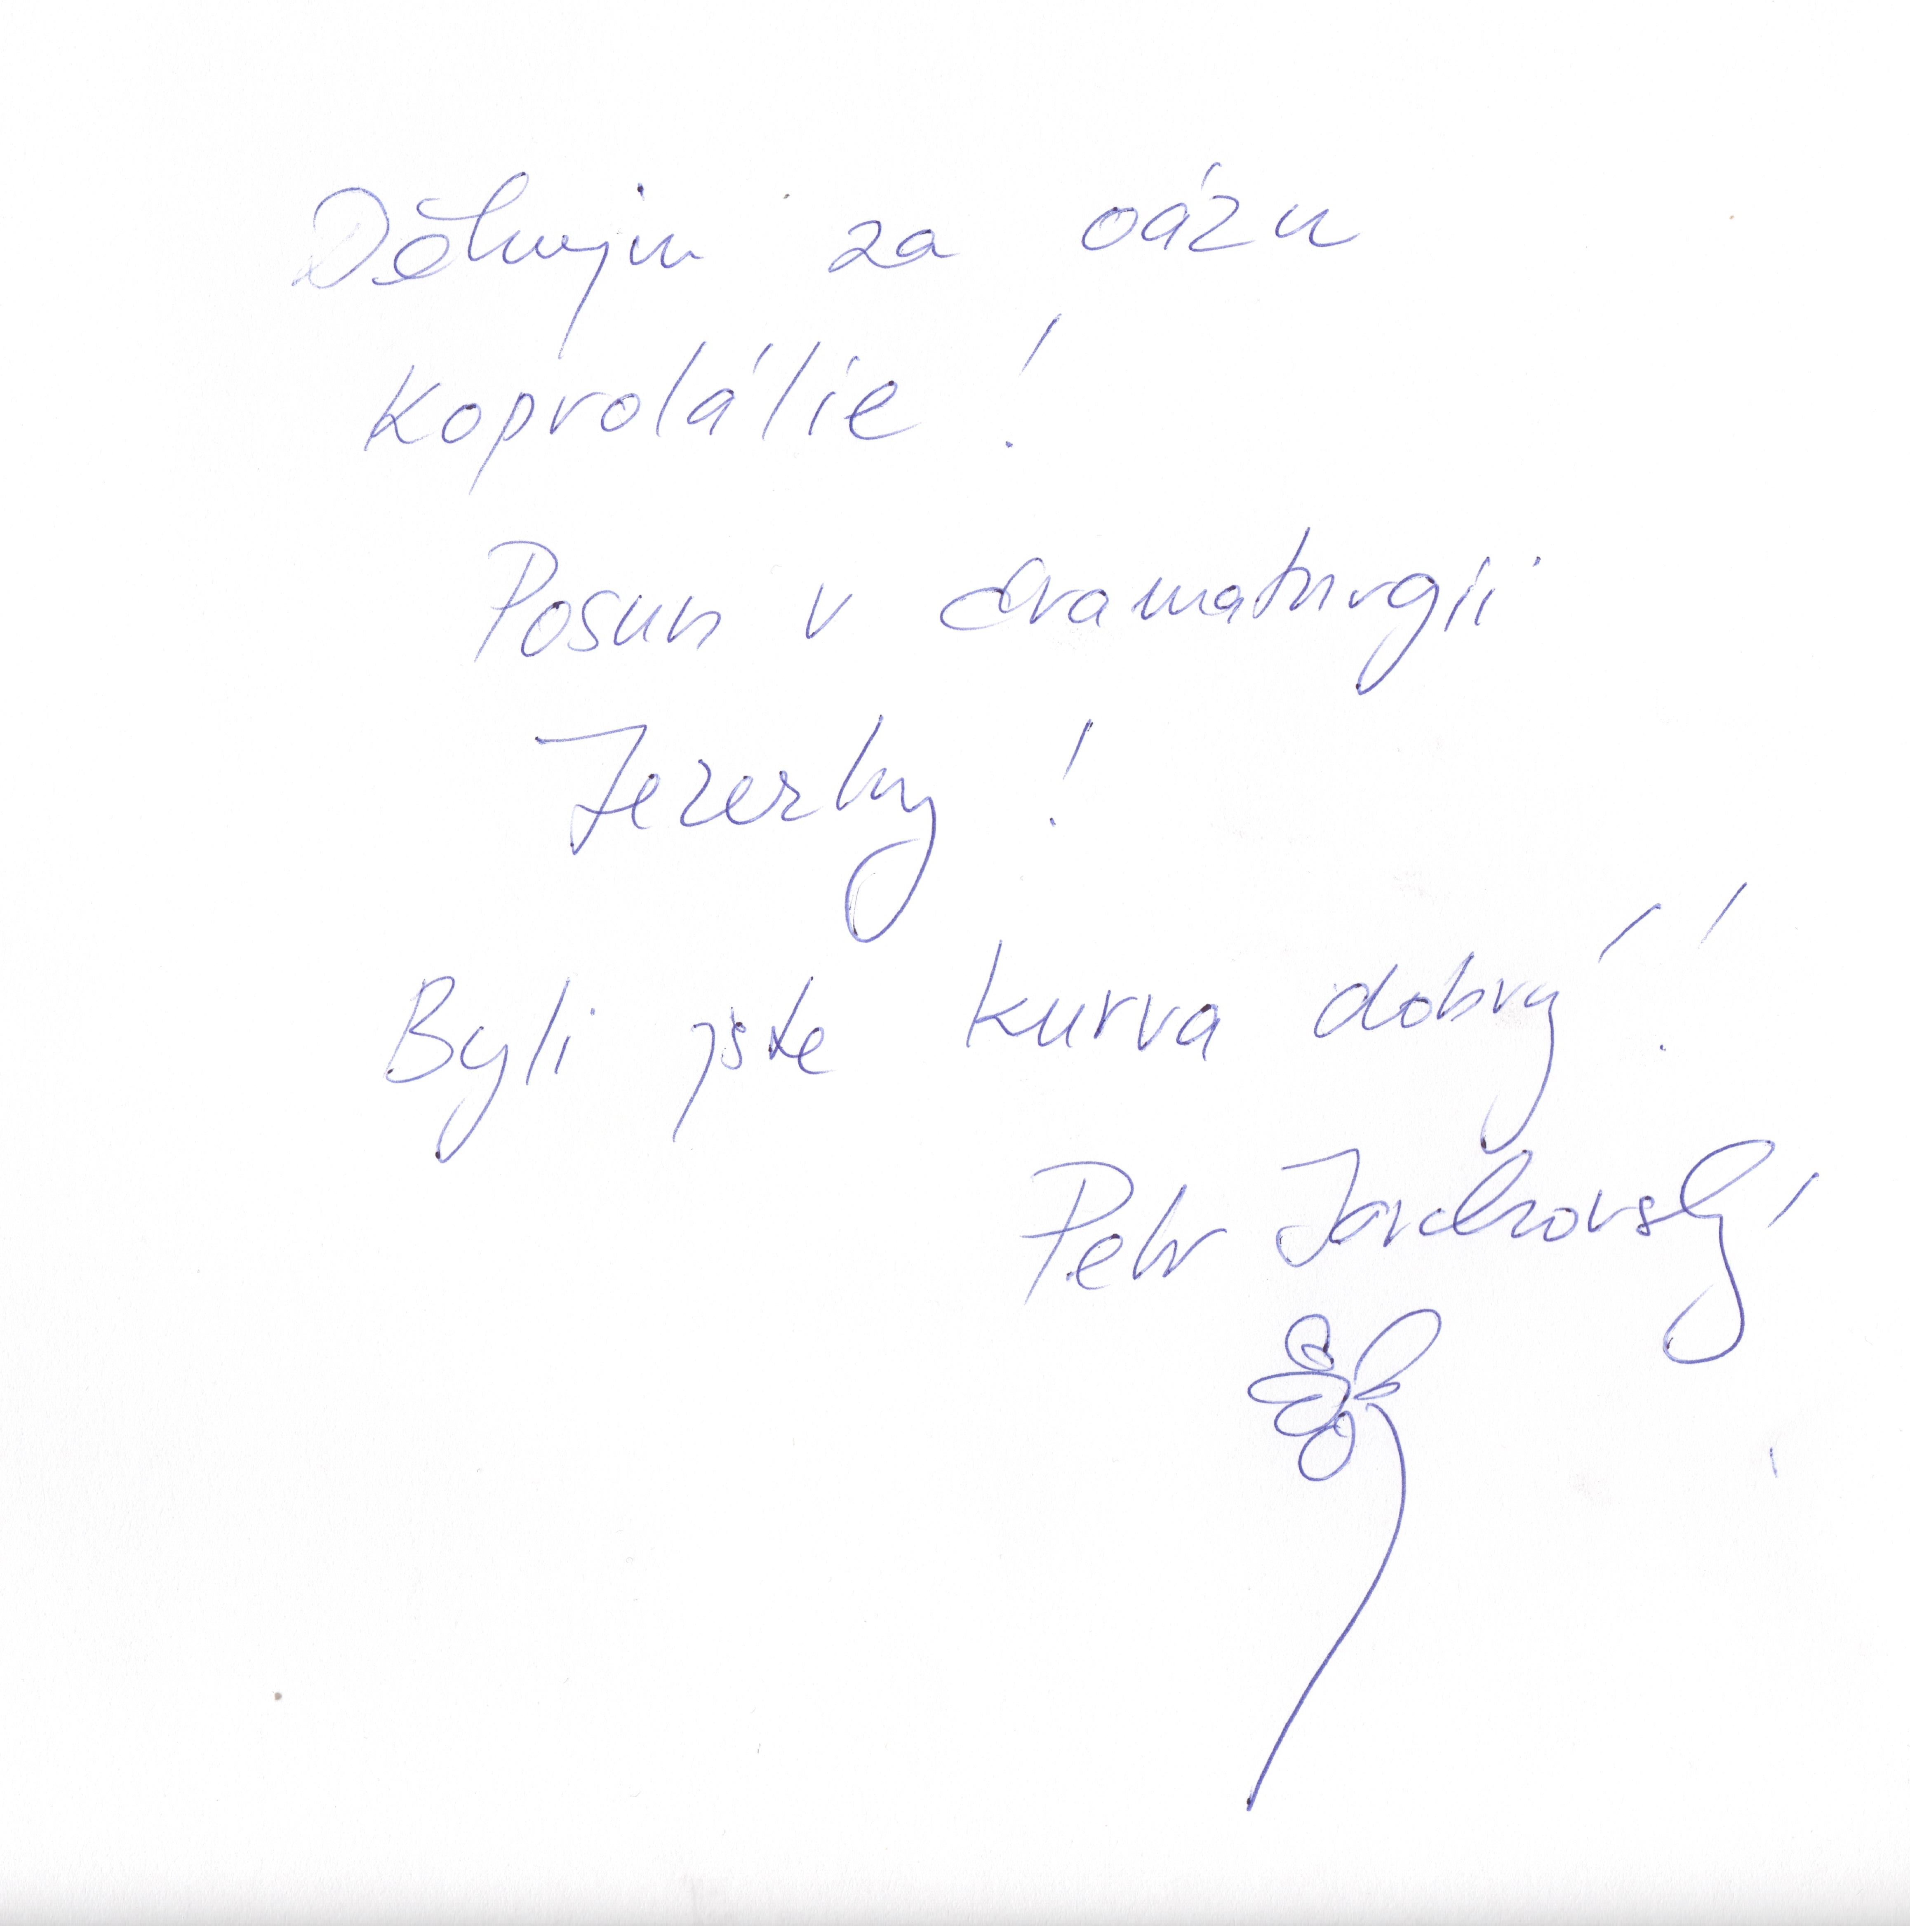 Děkuji za oázu
koprolálie!
Posun v dramaturgii
Jezerky!
Byli jste kurva dobrý!
Petr Jarchovský